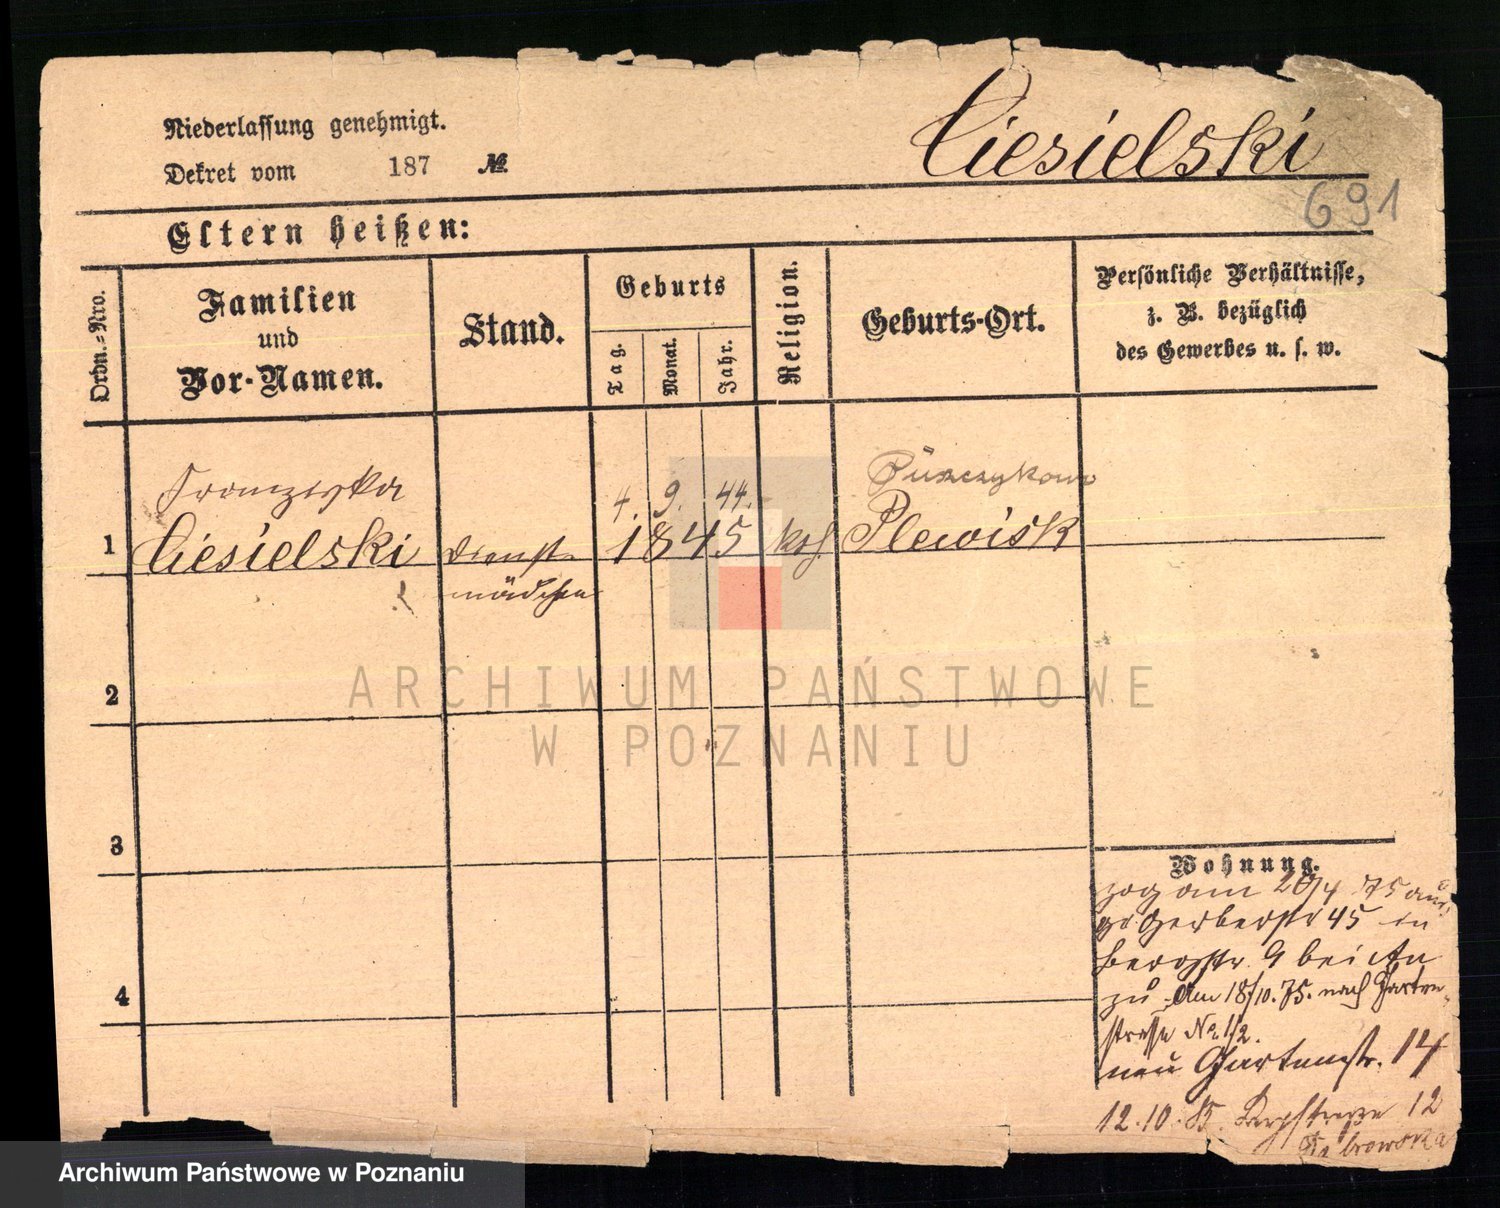 Niederlassung genehmigt.
Dekret vom 187 №
Ciesielski
691
Eltern heißen:
Ordn.-Nro.
Familien
und
Vor-Namen.
Stand.
Geburts
Tag.
Monat.
Jahr.
Religion.
Geburts-Ort.
Persönliche Verhältnisse,
z. B. bezüglich
des Gewerbes u. s. w.
Franziska 4. 9. 44. Puszczykowo
1 Ciesielski Dienst- 1845 kath Plewisk
mädchen
2
3
4
Wohnung.
zog am 20/4 75 aus
gr Gerberstr 45 in
Bergstr. 9 bei
zu Am 18/10.75. nach Garten-
strasse No. 1/2.
neu Gartenstr. 14
12.10. 12
ARCHIWUM PAŃSTWOWE
W POZNANIU
Archiwum Państwowe w Poznaniu